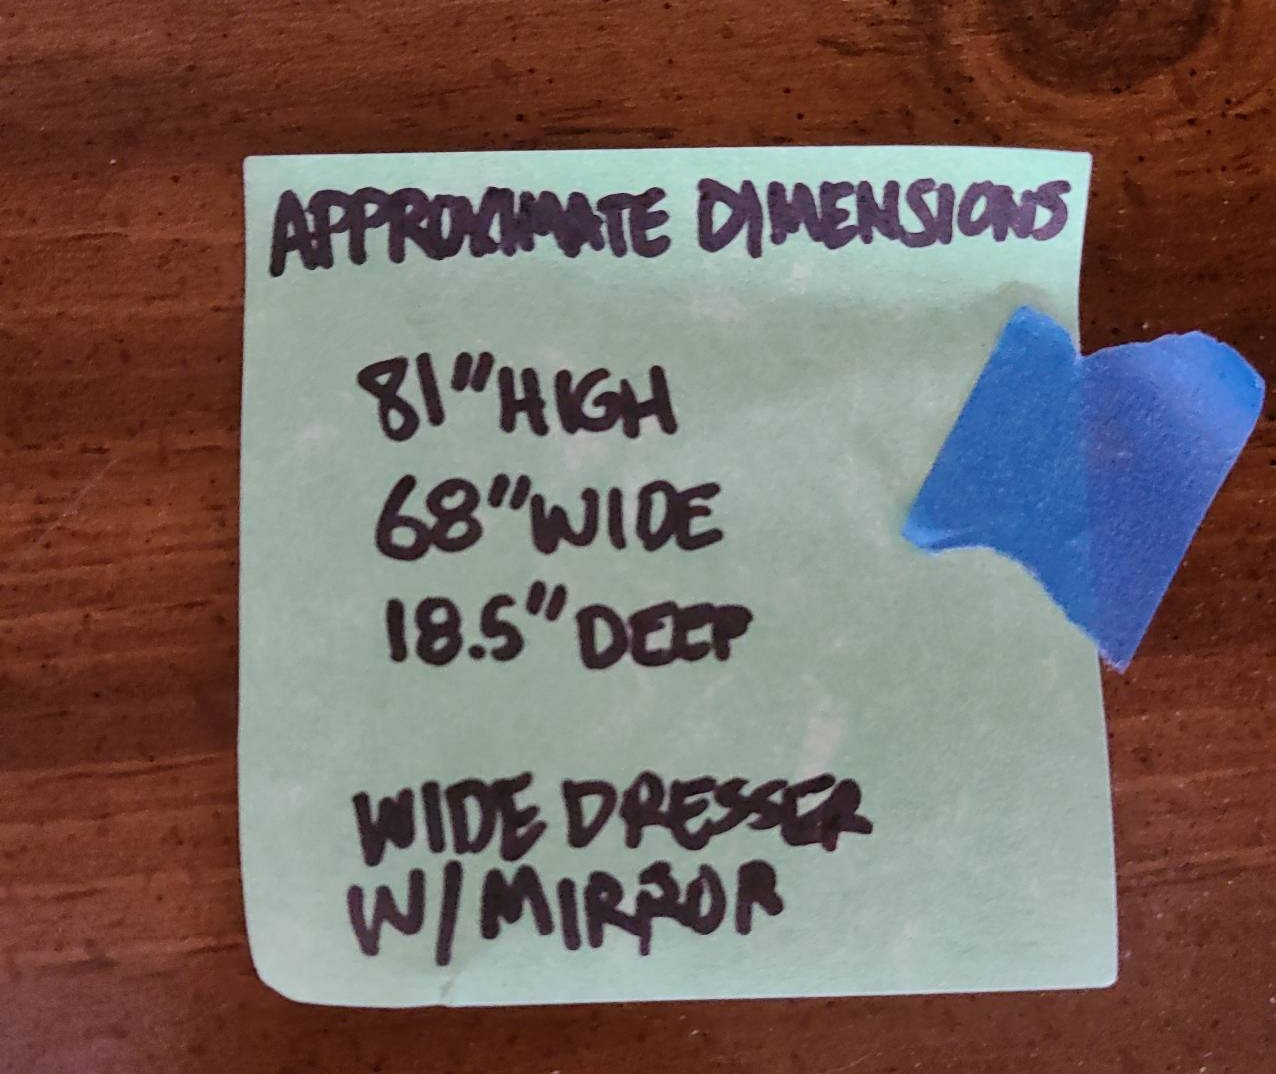 APPROXIMATE DIMENSIONS
81" HIGH
68" WIDE
18.5" DEEP
WIDE DRESSER
W/ MIRROR